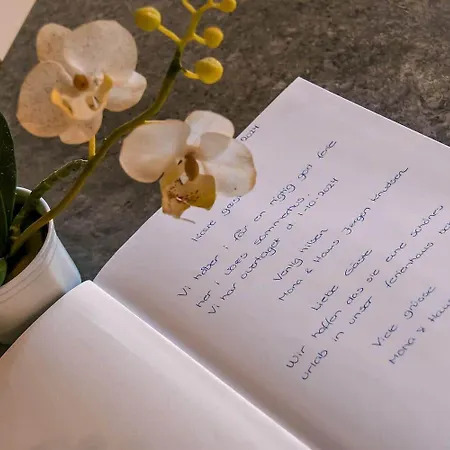 2024
Kære gæst
Vi håber i får en rigtig god ferie
her i vores sommerhus.
Vi har overtaget d 1.10-2024
Venlig hilsen
Mona & Hans Jørgen Knudsen
Liebe Gäste
Wir hoffen das sie eine schönes
urlab in unser ferienhaus
Viele grüsse
Mona & Hans